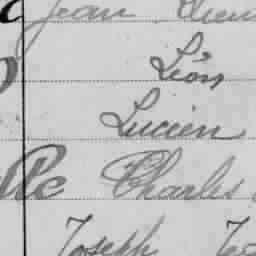 Jean
Léon
Lucien
Charles
Joseph